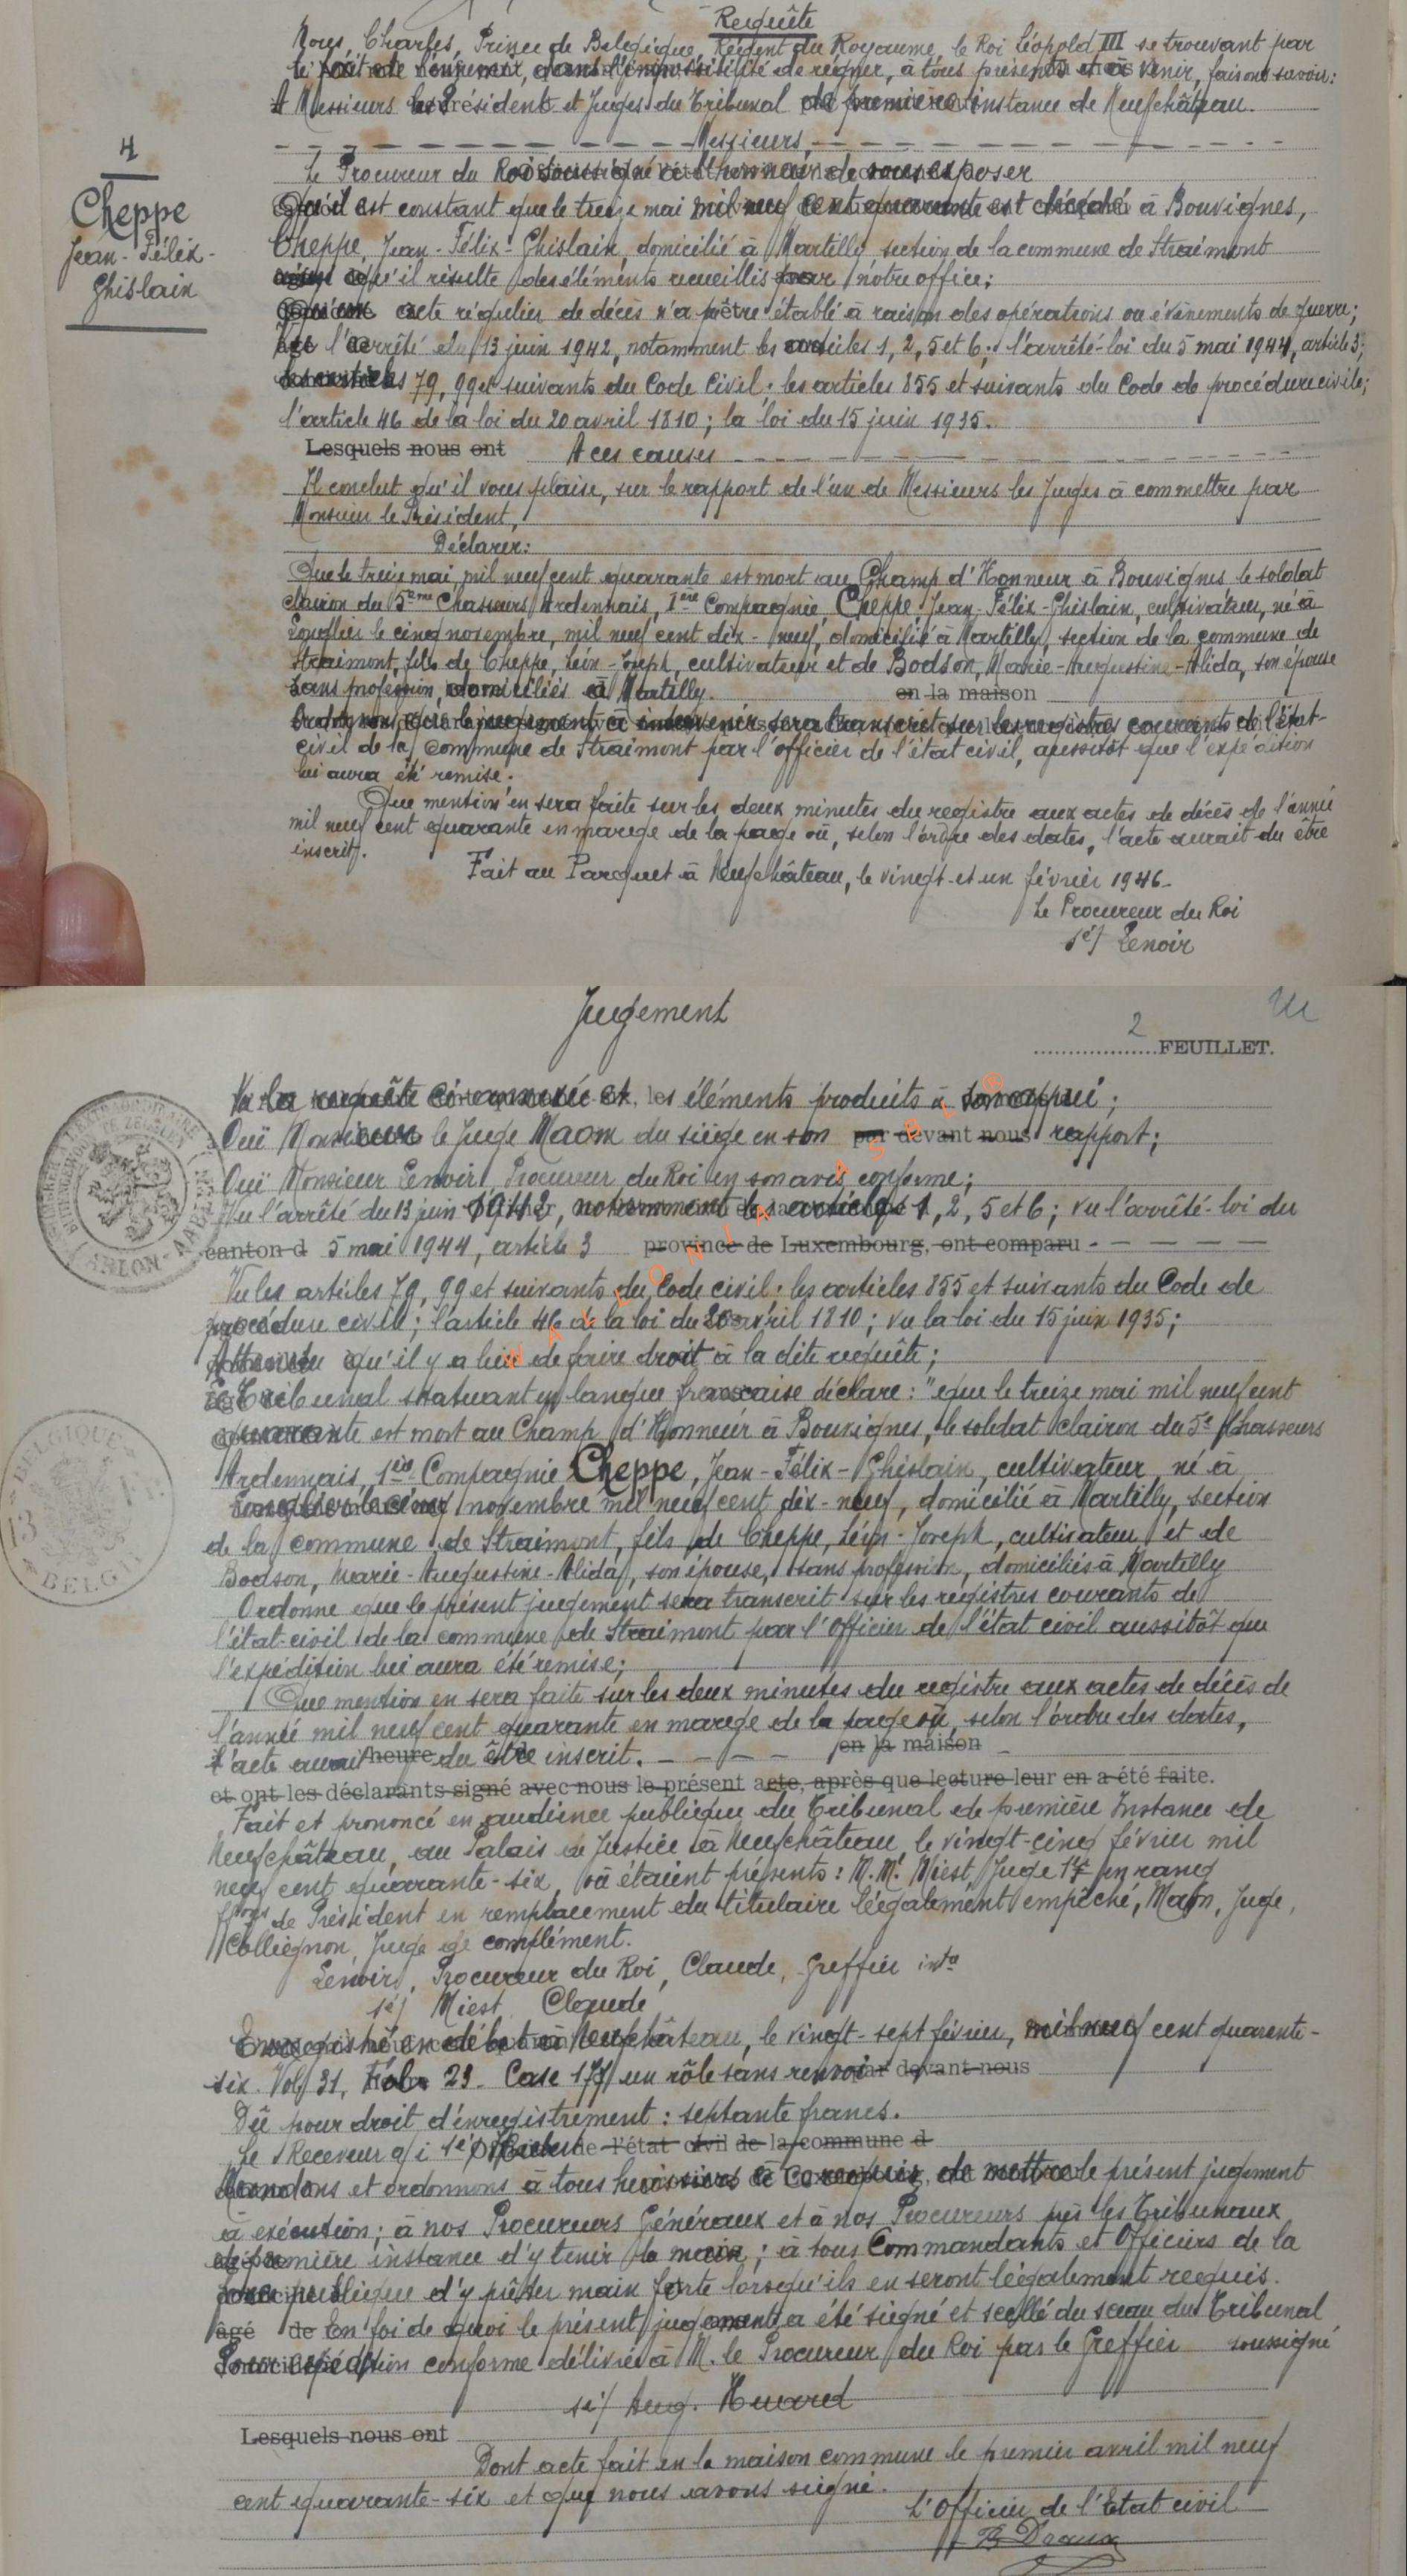 Requête
Nous, Charles, Prince de Belgique, Régent du Royaume, le Roi Léopold III se trouvant par
le fait de l'ennemi, dans l'impossibilité de régner, à tous présents et à venir, faisons savoir:
A Messieurs les Président et Juges du Tribunal de première instance de Neufchâteau.
Messieurs,
Le Procureur du Roi soussigné a l'honneur de vous exposer
4
Cheppe
Jean-Félix-
Ghislain
Qu'il est constant que le treize mai mil neuf cent quarante est décédé à Bouvignes,
Cheppe, Jean-Félix-Ghislain, domicilié à Martilly section de la commune de Straimont
ainsi qu'il résulte des éléments recueillis par notre office;
Qu'un acte régulier de décès n'a pu être établé à raison des opérations ou évènements de guerre;
Vu l'arrêté du 13 juin 1942, notamment les articles 1, 2, 5 et 6; l'arrêté-loi du 5 mai 1944, article 3;
les articles 79, 99 et suivants du Code Civil; les articles 855 et suivants du Code de procédure civile;
l'article 46 de la loi du 20 avril 1810; la loi du 15 juin 1935.
Lesquels nous ont A ces causes
Il conclut qu'il vous plaise, sur le rapport de l'un de Messieurs les Juges à commettre par
Monsieur le Président,
Déclarer:
Que le treize mai mil neuf cent quarante est mort au Champ d'Honneur à Bouvignes le soldat
clairon du 5eme Chasseurs Ardennais, 1ère Compagnie, Cheppe Jean-Félix-Ghislain, cultivateur, né à
Longlier le cinq novembre, mil neuf cent dix-neuf, domicilié à Martilly, section de la commune de
Straimont, fils de Cheppe, Léon-Joseph, cultivateur et de Bodson, Marie-Augustine-Alida, son épouse
sans profession, domiciliés à Martilly. en la maison
que le jugement à intervenir sera transcrit sur les registres courants de l'état-
civil de la commune de Straimont par l'officier de l'état civil, aussitôt que l'expédition
lui aura été remise.
Que mention en sera faite sur les deux minutes du registre aux actes de décès de l'année
mil neuf cent quarante en marge de la page où, selon l'ordre des dates, l'acte aurait du être
inscrit.
Fait au Parquet à Neufchâteau, le vingt-et-un février 1946.
Le Procureur du Roi
sé/ Lenoir
Jugement
2 FEUILLET.
Vu la requête ci-annexée et les éléments produits à son appui;
Ouï Monsieur le Juge Maon du siège en son par devant nous rapport;
Ouï Monsieur Lenoir, Procureur du Roi en son avis conforme;
Vu l'arrêté du 13 juin 1942, notamment les articles 1, 2, 5 et 6; vu l'arrêté-loi du
canton d 5 mai 1944, article 3 province de Luxembourg, ont comparu
Vu les articles 79, 99 et suivants du Code civil; les articles 855 et suivants du Code de
procédure civile; l'article 46 de la loi du 20 avril 1810; vu la loi du 15 juin 1935;
Attendu qu'il y a lieu de faire droit à la dite requête;
Le Tribunal statuant en langue française déclare: "que le treize mai mil neuf cent
quarante est mort au Champ d'Honneur à Bouvignes, le soldat clairon du 5e Chasseurs
Ardennais, 1ère Compagnie Cheppe, Jean-Félix-Ghislain, cultivateur, né à
Longlier le cinq novembre mil neuf cent dix-neuf, domicilié à Martilly, section
de la commune de Straimont, fils de Cheppe, Léon-Joseph, cultivateur et de
Bodson, Marie-Augustine-Alida, son épouse, sans profession, domiciliés à Martilly
Ordonne que le présent jugement sera transcrit sur les registres courants de
l'état-civil de la commune de Straimont par l'Officier de l'état civil aussitôt que
l'expédition lui aura été remise;
Que mention en sera faite sur les deux minutes du registre aux actes de décès de
l'année mil neuf cent quarante en marge de la page où, selon l'ordre des dates,
l'acte aurait heure du être inscrit. en la maison
et ont les déclarants signé avec nous le présent acte, après que lecture leur en a été faite.
Fait et prononcé en audience publique du Tribunal de première Instance de
Neufchâteau, au Palais de Justice à Neufchâteau, le vingt-cinq février mil
neuf cent quarante-six, où étaient présents: M.M. Miest, Juge en rang
ffons de Président en remplacement du titulaire légalement empêché, Maon, Juge,
Collignon, Juge de complément.
Lenoir, Procureur du Roi, Claude, Greffier
sé/ Miest Claude
Enregistré en débet à Neufchâteau, le vingt-sept février, mil neuf cent quarante-
six. Vol 31, Folio 23. Case 17 un rôle sans renvoi par devant nous
Dû pour droit d'enregistrement: septante francs.
Le Receveur a/i sé/ de l'état civil de la commune d
Mandons et ordonnons à tous huissiers à ce requis de mettre le présent jugement
à exécution; à nos Procureurs Généraux et à nos Procureurs près les Tribunaux
de première instance d'y tenir la main; à tous Commandants et Officiers de la
force publique d'y prêter main forte lorsqu'ils en seront légalement requis.
âgé de En foi de quoi le présent jugement a été signé et scellé du sceau du Tribunal
Pour expédition conforme délivrée à M. le Procureur du Roi par le Greffier soussigné
sé/ Aug. Huard
Lesquels nous ont
Dont acte fait en la maison commune le premier avril mil neuf
cent quarante-six et que nous avons signé.
L'Officier de l'Etat civil
WALLONIA ASBL ®
BELGIQUE
BELGIE
ARLON-AARLEN